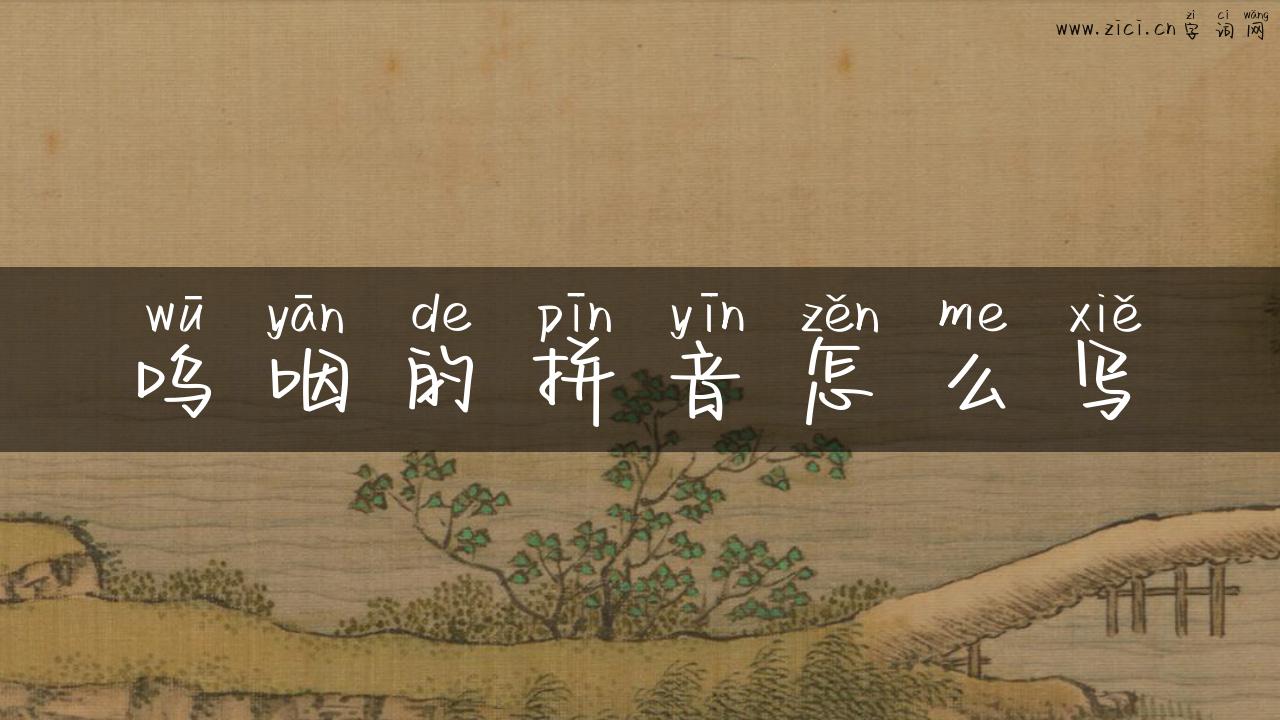 zì cí wǎng
www.zici.cn 字 词 网
wū yān de pīn yīn zěn me xiě
呜 咽 的 拼 音 怎 么 写